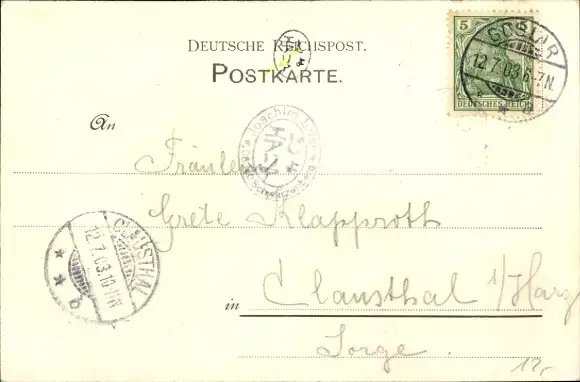 DEUTSCHE REICHSPOST.
POSTKARTE.
5
DEUTSCHES REICH
GOSLAR
12.7.03.6-7N.
* * b
An
Fräulein
Joachim
Grete Klapproth
CLAUSTHAL
12.7.03.10-11N.
* * b
in Clausthal i/Harz
Sorge.
12,-